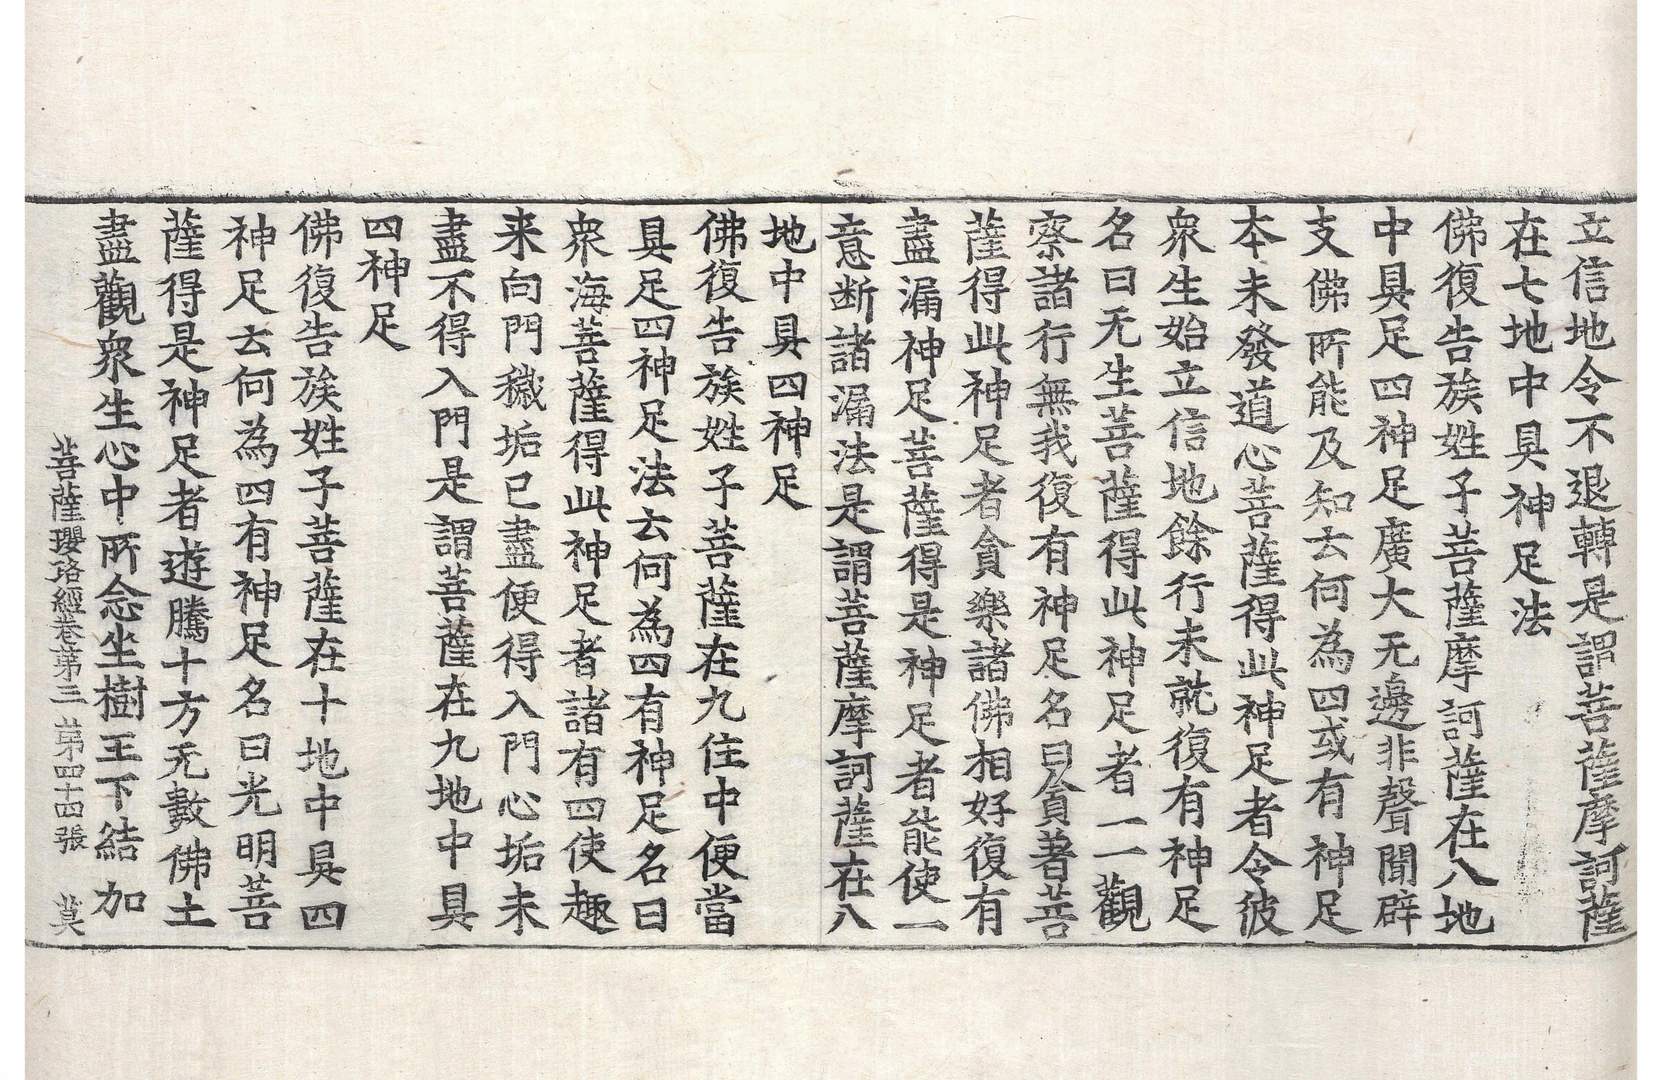 立信地令不退轉是謂菩薩摩訶薩
在七地中具神足法
佛復告族姓子菩薩摩訶薩在八地
中具足四神足廣大无邊非聲聞辟
支佛所能及知去何為四或有神足
本未發道心菩薩得此神足者令彼
衆生始立信地餘行未就復有神足
名曰无生菩薩得此神足者一一觀
察諸行無我復有神足名曰貪著菩
薩得此神足者貪樂諸佛相好復有
盡漏神足菩薩得是神足者能使一
意断諸漏法是謂菩薩摩訶薩在八
地中具四神足
佛復告族姓子菩薩在九住中便當
具足四神足法去何為四有神足名曰
衆海菩薩得此神足者諸有四使趣
来向門穢垢已盡便得入門心垢未
盡不得入門是謂菩薩在九地中具
四神足
佛復告族姓子菩薩在十地中具四
神足去何為四有神足名曰光明菩
薩得是神足者遊騰十方无數佛土
盡觀衆生心中所念坐樹王下結加
菩薩瓔珞經卷第三 第四十四張 莫